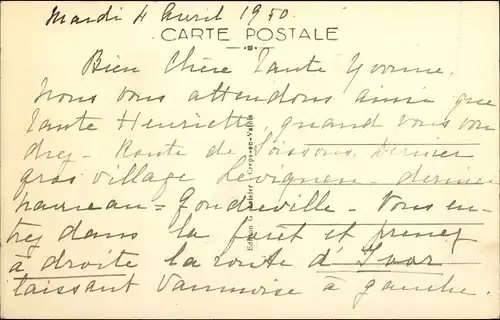 Mardi 4 Avril 1950.
CARTE POSTALE
Bien Chère Tante Yvonne.
Nous vous attendons ainsi que
Tante Henriette, quand vous vou
drez - Route de Soissons. Dernier
gros village Levignen - dernier
hameau = Gondreville - Vous en-
trez dans la forêt et prenez
à droite la route d'Ivors
laissant Vaumoise à gauche.
Edition Crépy-en-Valois